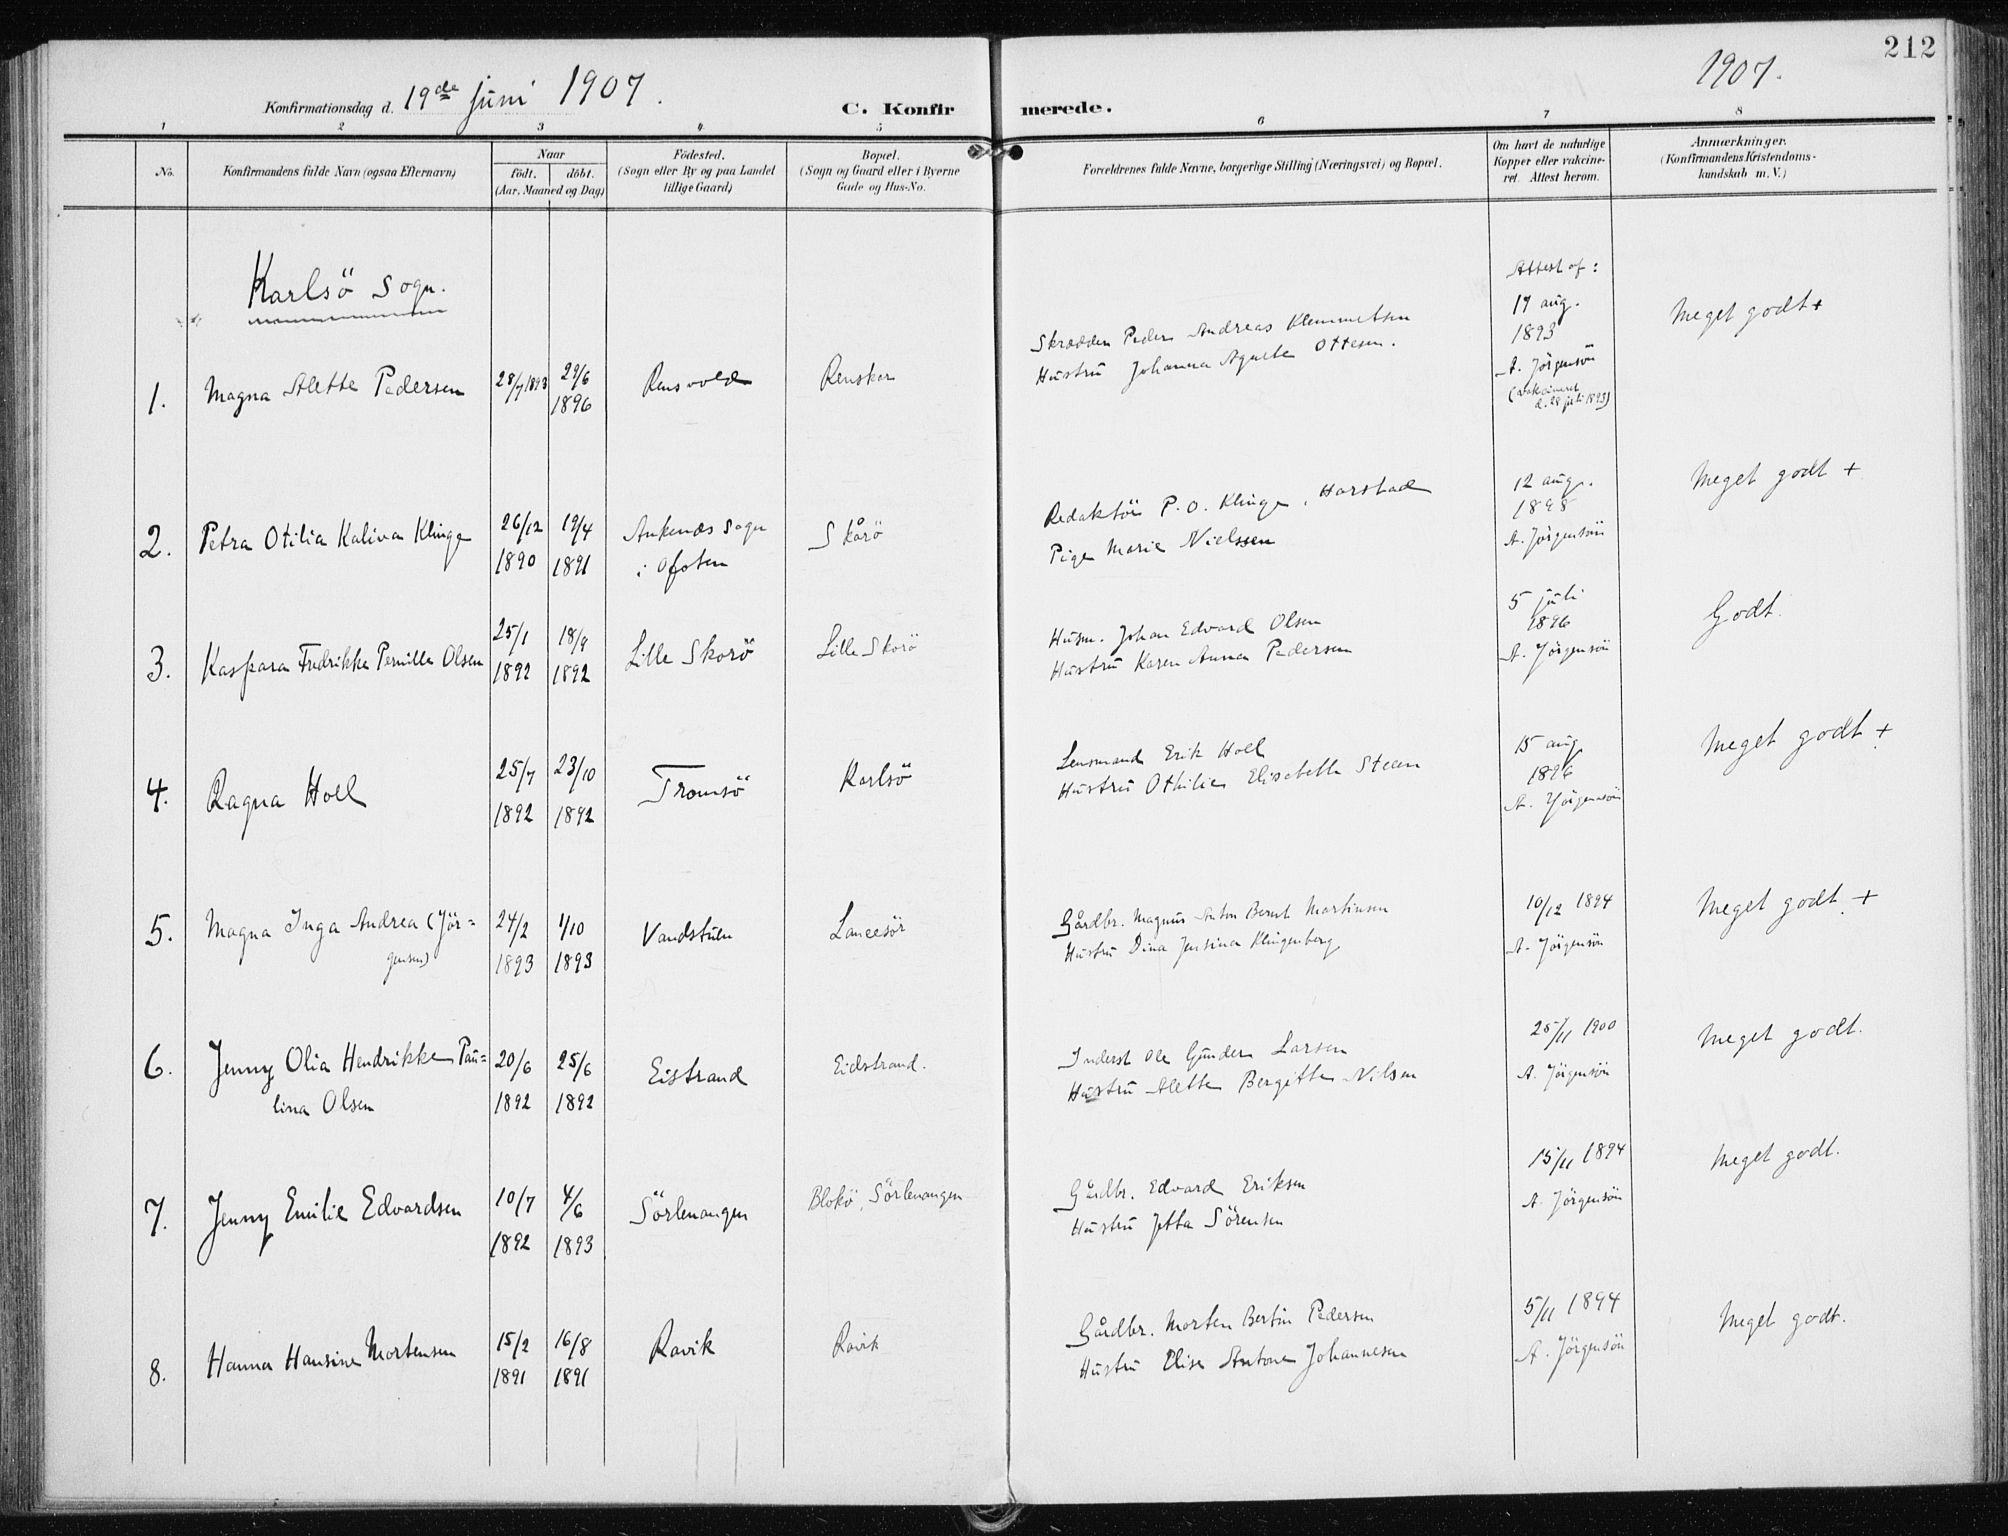 212
Konfirmationsdag d. 19de juni 1907.
C. Konfirmerede.
1907.
1 2 3 4 5 6 7 8
No.
Konfirmandens fulde Navn (ogsaa Efternavn)
Naar
født. døbt.
(Aar, Maaned og Dag)
Fødested.
(Sogn eller By og paa Landet
tillige Gaard)
Bopæl.
(Sogn og Gaard eller i Byerne
Gade og Hus-No.
Forældrenes fulde Navne, borgerlige Stilling (Næringsvei) og Bopæl.
Om havt de naturlige
Kopper eller vakcine-
ret. Attest herom.
Anmærkninger.
(Konfirmandens Kristendoms-
kundskab m. V.)
Karlsö Sogn.
Attest af:
1. Magna Alette Pedersen
28/7 1893
29/6
1896
Rensvold
Renskar
Skrædder Peder Andreas Klemmetsen
Hustru Johanna Agnete Ottesen.
17 aug.
1893
A. Jörgensön
(vakcineret
d. 28 juli 1893)
Meget godt +
2. Petra Otilia Kaliva Klinge
26/12
1890
19/4
1891
Ankenæs Sogn
i Ofoten
Skårö
Redaktör P. O. Klinge, Harstad
Pige Marie Nielssen
12 aug.
1898
A. Jörgensön
Meget godt +
3. Kaspara Fredrikke Pernille Olsen
25/1
1892
18/9
1892
Lille Skorö
Lille Skorö
Husm. Johan Edvard Olsen
Hustru Karen Anna Pedersen
5 juli
1896
A. Jörgensön
Godt.
4. Ragna Holl
25/7
1892
23/10
1892
Tromsö
Karlsö
Lensmand Erik Holl
Hustru Othilie Elisabeth Steen
15 aug
1896
A. Jörgensön
Meget godt +
5. Magna Inga Andrea (Jör=
gensen)
24/2
1893
1/10
1893
Vandstuen
Lanesör
Gårdbr. Magnus Anton Bernt Martinsen
Hustru Dina Jensina Klingenberg
10/12 1894
A. Jörgensön
Meget godt +
6. Jenny Olia Hendrikke Pau=
lina Olsen
20/6
1892
25/6
1892
Eistrand
Eidstrand.
Inderst Ole Gunder Larsen
Hustru Alette Bergitte Nilsen
25/11 1900
A. Jörgensön
Meget godt.
7. Jenny Emilie Edvardsen
10/7
1892
4/6
1893
Sörlenangen
Blokö, Sörlenangen
Gårdbr. Edvard Eriksen
Hustru Jetta Sörensen
15/11 1894
A. Jörgensön
Meget godt.
8. Hanna Hansine Mortensen
15/2
1891
16/8
1891
Ravik
Ravik
Gårdbr. Morten Bertin Pedersen
Hustru Elise Antone Johannesen
5/11 1894
A. Jörgensön
Meget godt.